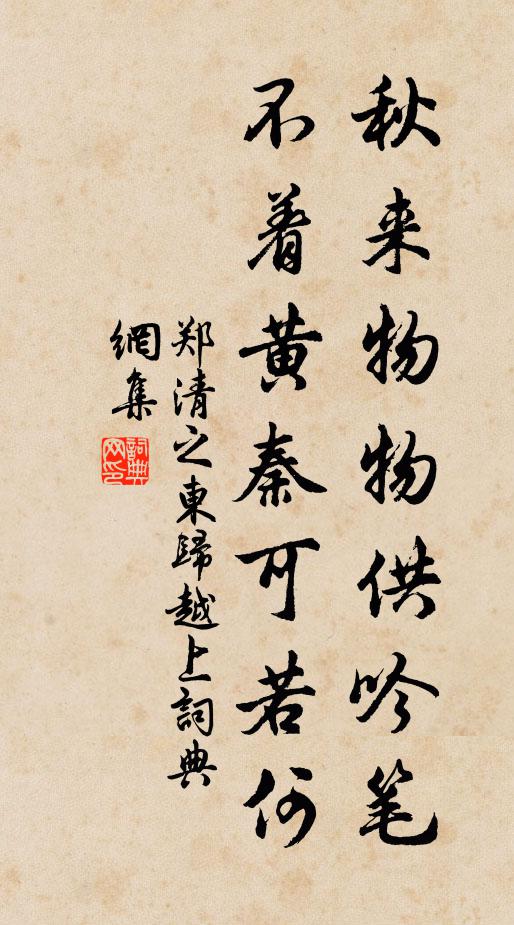 秋来物物供吟笔
不着黄秦可若何
郑清之東歸越上詞典
網集
詞典
网印